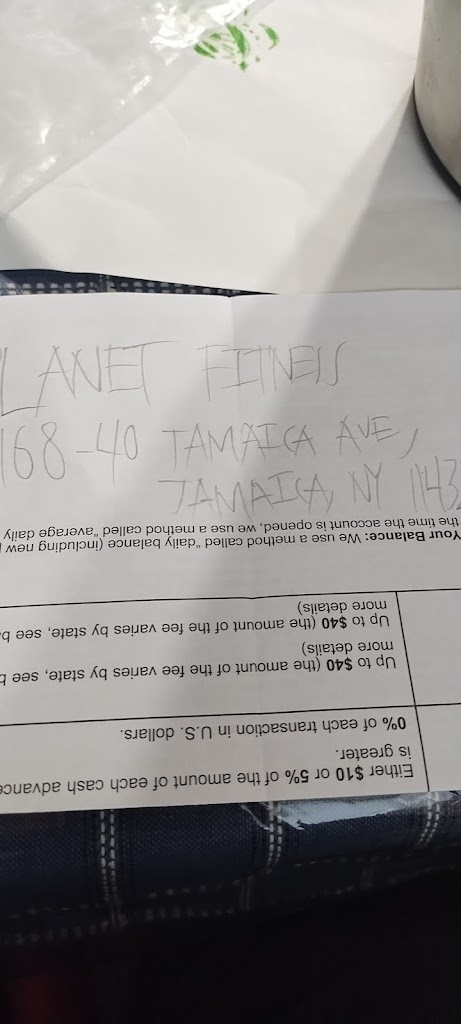 LANET FITNESS
168-40 JAMAICA AVE,
JAMAICA, NY 1143
Either $10 or 5% of the amount of each cash advance
is greater.
0% of each transaction in U.S. dollars.
Up to $40 (the amount of the fee varies by state, see b
more details)
Up to $40 (the amount of the fee varies by state, see ba
more details)
Your Balance: We use a method called "daily balance (including new
the time the account is opened, we use a method called "average daily